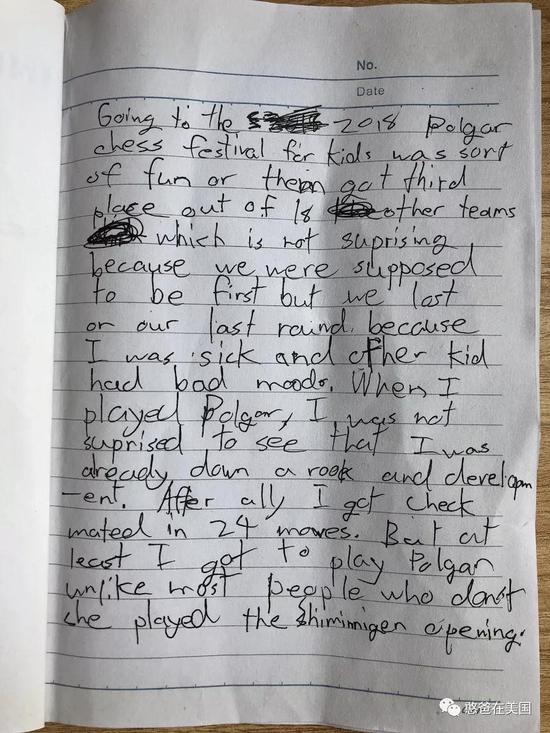 No.
Date
Going to the 2018 Polgar
chess festival for kids was sort
of fun or then got third
place out of 18 other teams
which is not suprising
because we were supposed
to be first but we lost
or our last round. because
I was sick and other kid
had bad moods. When I
played Polgar, I was not
suprised to see that I was
already down a rook and developm
-ent. After ally I got check
mated in 24 moves. But at
least I got to play Polgar
unlike most people who donot
she played the shiminigen opening.
憨爸在美国